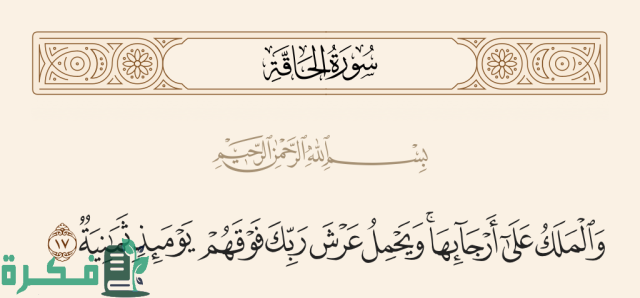 سُورَةُ الحَاقَّةِ
بِسْمِ ٱللَّهِ ٱلرَّحْمَٰنِ ٱلرَّحِيمِ
وَٱلْمَلَكُ عَلَىٰٓ أَرْجَآئِهَا ۚ وَيَحْمِلُ عَرْشَ رَبِّكَ فَوْقَهُمْ يَوْمَئِذٍ ثَمَٰنِيَةٌ ١٧
فكرة